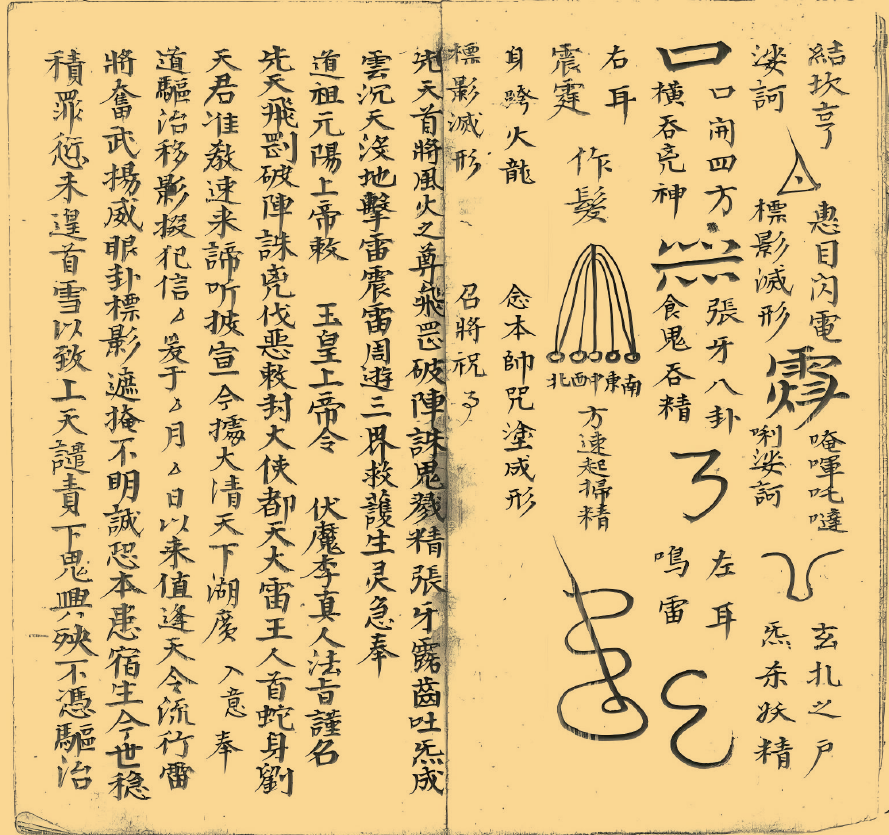 結坎亨
娑訶
惠目閃電
標影滅形
唵㖶吒噠
唎娑訶
玄扎之戸
炁杀妖精
口開四方
橫吞旡神
張牙八卦
食鬼吞精
左耳
鳴雷
右耳
震霆
作髮
北西中東南
方速起掃精
身跨火龍
念本帥咒塗成形
標影滅形
召將祝
先天首將風火之尊飛罡破陣誅鬼戮精張牙露齒吐炁成
雲沉天沒地擊雷震雷周遊三界救護生灵急奉
道祖元陽上帝敕 玉皇上帝令 伏魔李真人法旨謹名
先天飛罡破陣誅旡伐惡敕封大使都天大雷王人首蛇身劉
天君准教速来諦听披宣今據大清天下湖廣 入意 奉
道驅治移影掇犯信 爰于 月 日以来值逢天令流行雷
將奮武揚威眼卦標影遮掩不明誠恐本患宿生今世稳
積罪愆未遑首雪以致上天譴責下鬼興殃不憑驅治